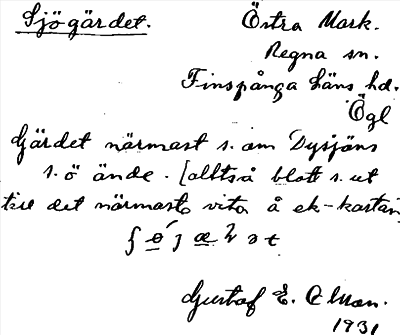 Sjögärdet.
Östra Mark.
Regna sn.
Finspånga läns hd.
Ögl
Gärdet närmast s. om Dysjöns
s. ö ände. [alltså blott s. ut
det närmaste å ek-kartan
Gustaf E.
1931